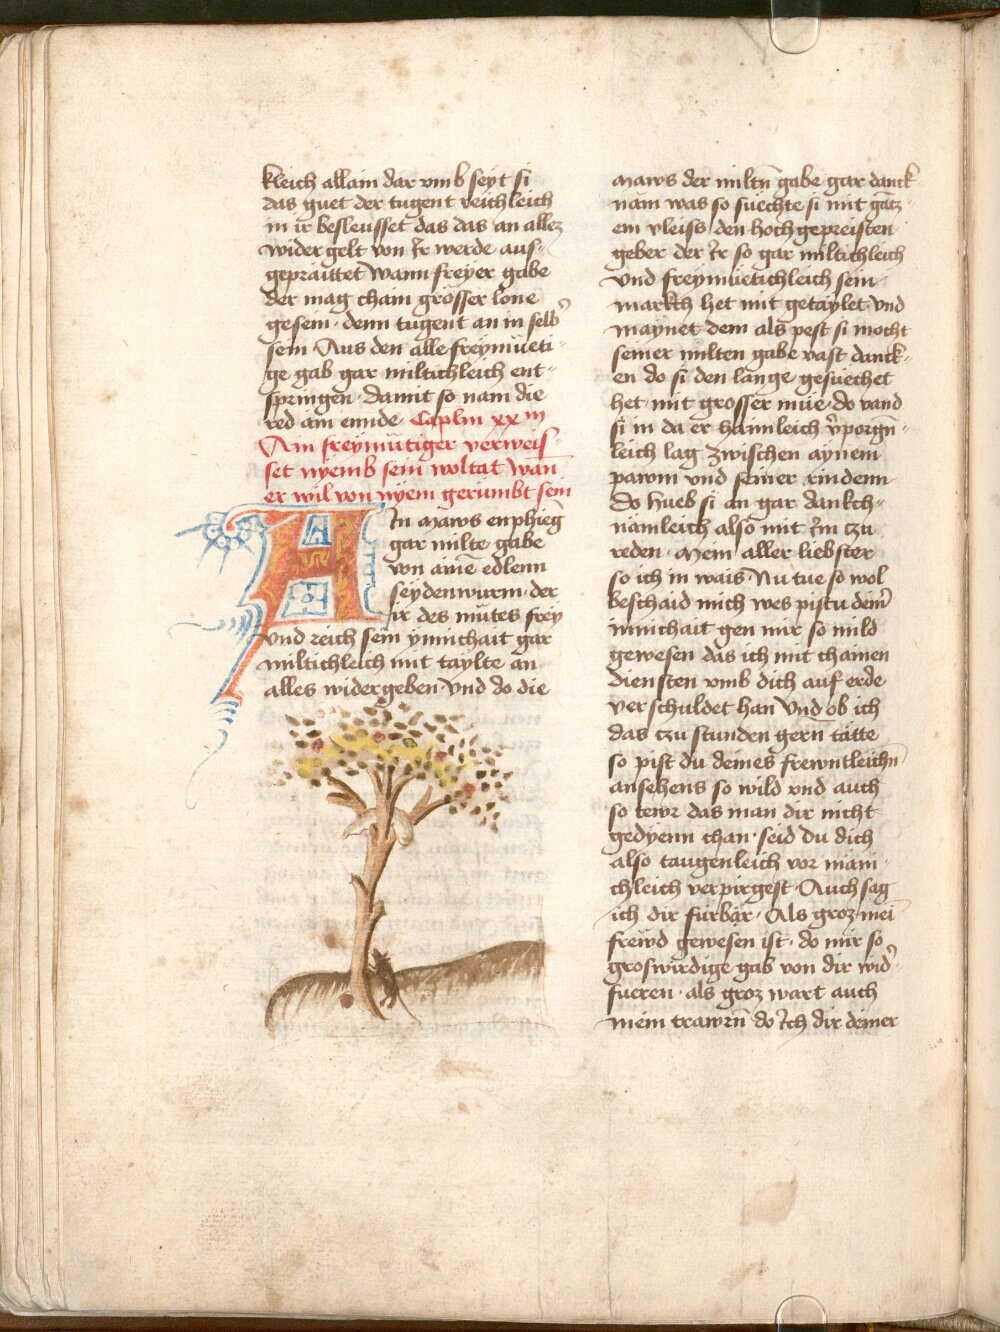 kleich allain dar vmb seyt si
das guet der tugent reichleich
in ir besleusset das das an allez
wider gelt von ir werde aus-
gepraittet Wann freyer gabe
der mag chain grösser lone
gesein · denn tugent an in selb
sein Aus den alle freymüeti-
ge gab gar miltichleich ent-
springen · damit so nam die
red am ennde Caplm xx iij
Ain freymütiger verweis-
set nyemb sein woltat wan
er wil von nyem gerümbt sein
Ain maws enphieg
gar milte gabe
von aine edlenn
seydenwurm · der
ir des mutes frey
vnd reich sein ynnichait gar
miltichleich mit taylte an
alles widergeben · Vnd do die
maws der miltn gabe gar danck
nam was so suechte si mit gatz-
em vleiss den hochgepreisten
geber der ir so gar miltichleich
vnd freymüetichleich sein
markth het mit getaylet · vnd
maynet dem als pest si mocht
seiner milten gabe vast danck-
en do si den lange gesuechet
het · mit grosser müe · do vand
si in da er haimleich vporgn-
leich lag zwischen aynem
pawm vnd seiner rindenn
do hueb si an gar dankch-
nämleich also mit im tzu
reden · Mein aller liebster
so ich in wais · Nu tue so wol
beschaid mich wes pistu dein
innichait gen mir so mild
gewesen das ich mit chainen
diensten vmb dich auf erde
verschuldet han Vnd ob ich
das tzu stunden gern tätte
so pist du deines frewntleichn
ansehens so wild vnd auch
so tewr das man dir nicht
gedyenn chan · seid du dich
also taugenleich vor mäni-
chleich verpirgest · Auch sag
ich dir fürbar · Als groz mei
frewd gewesen ist · do mir so
groswirdige gab von dir wid-
fueren · als groz wart auch
mein trawrn do ich dir deiner